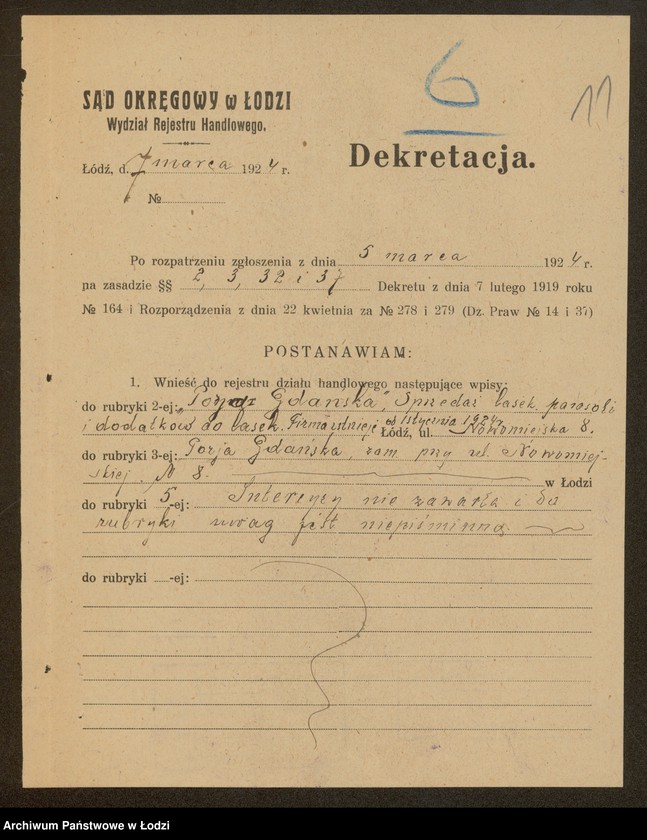 6
11
SĄD OKRĘGOWY w ŁODZI
Wydział Rejestru Handlowego.
Dekretacja.
Łódź, d. 7 marca 1924 r.
№
Po rozpatrzeniu zgłoszenia z dnia 5 marca 1924 r.
na zasadzie §§ 2, 3, 32 i 37 Dekretu z dnia 7 lutego 1919 roku
№ 164 i Rozporządzenia z dnia 22 kwietnia za № 278 i 279 (Dz. Praw № 14 i 37)
POSTANAWIAM:
1. Wnieść do rejestru działu handlowego następujące wpisy:
do rubryki 2-ej: „Gdańska", Sprzedaż lasek, parasoli
i dodatków do lasek. Firma istnieje od 1 stycznia 1924 r.
Łódź, ul. Nowomiejska 8.
do rubryki 3-ej: Gdańska, zam. przy ul. Nowomiej-
skiej № 8. w Łodzi
do rubryki 5-ej: Intercyzy nie zawarła i do
rubryki uwag jest niepiśminna
do rubryki -ej:
Archiwum Państwowe w Łodzi